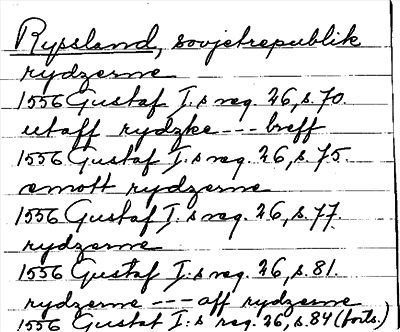 Ryssland, sovjetrepublik
rydzerne
1556 Gustaf I:s reg. 26, s. 70.
utaff rydzke --- breff
1556 Gustaf I:s reg. 26, s. 75.
emott rydzerne
1556 Gustaf I:s reg. 26, s. 77.
rydzerne
1556 Gustaf I:s reg. 26, s. 81.
rydzerne --- aff rydzerne
1556 Gustaf I:s reg. 26, s. 84 (forts.)